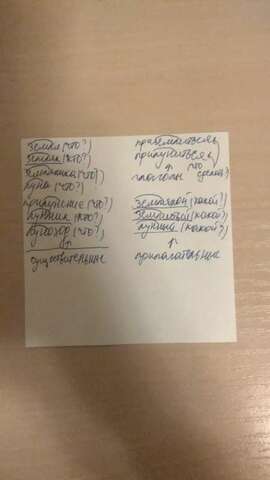 Земля (что?)
Земляк (кто?)
Землянка (что?)
Луна (что?)
Прилунение (что?)
Лунник (кто?)
Луноход (что?)
существительные
приземлиться
прилуниться
глаголы (что сделать?)
Земляной (какой?)
Земляничный (какой?)
Лунный (какой?)
прилагательные